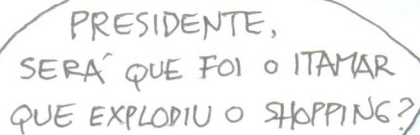 PRESIDENTE,
SERÁ QUE FOI O ITAMAR
QUE EXPLODIU O SHOPPING?